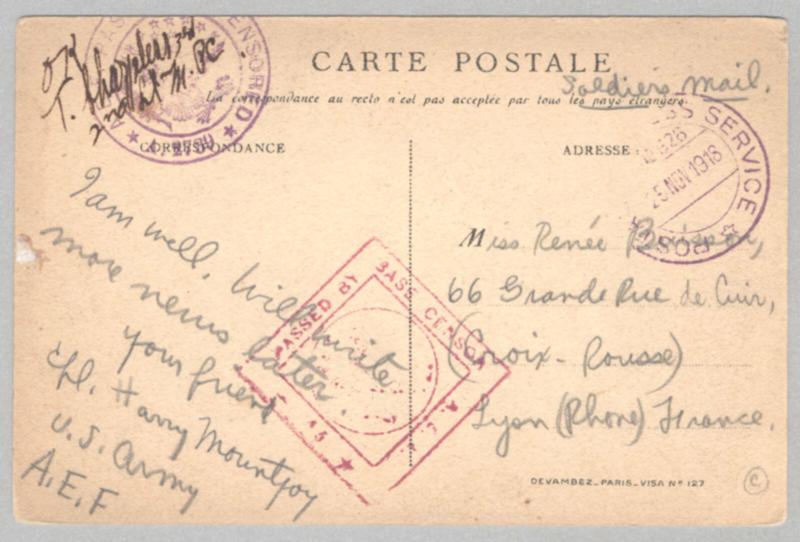 OK
2nd Lt M.PC
CENSORED
CARTE POSTALE
Soldiers mail.
La correspondance au recto n'est pas acceptée par tous les pays étrangers
CORRESPONDANCE
ADRESSE :
SERVICE
25 NOV 1918
POST
I am well. Will write
more news later.
your friend
Cpl. Harry Mountjoy
U.S. Army
A.E.F
PASSED BY BASE CENSOR
Miss Renée
66 Grande Rue de Cuir,
(Croix-Rousse)
Lyon (Rhone) France.
DEVAMBEZ_PARIS_VISA Nº 127
C